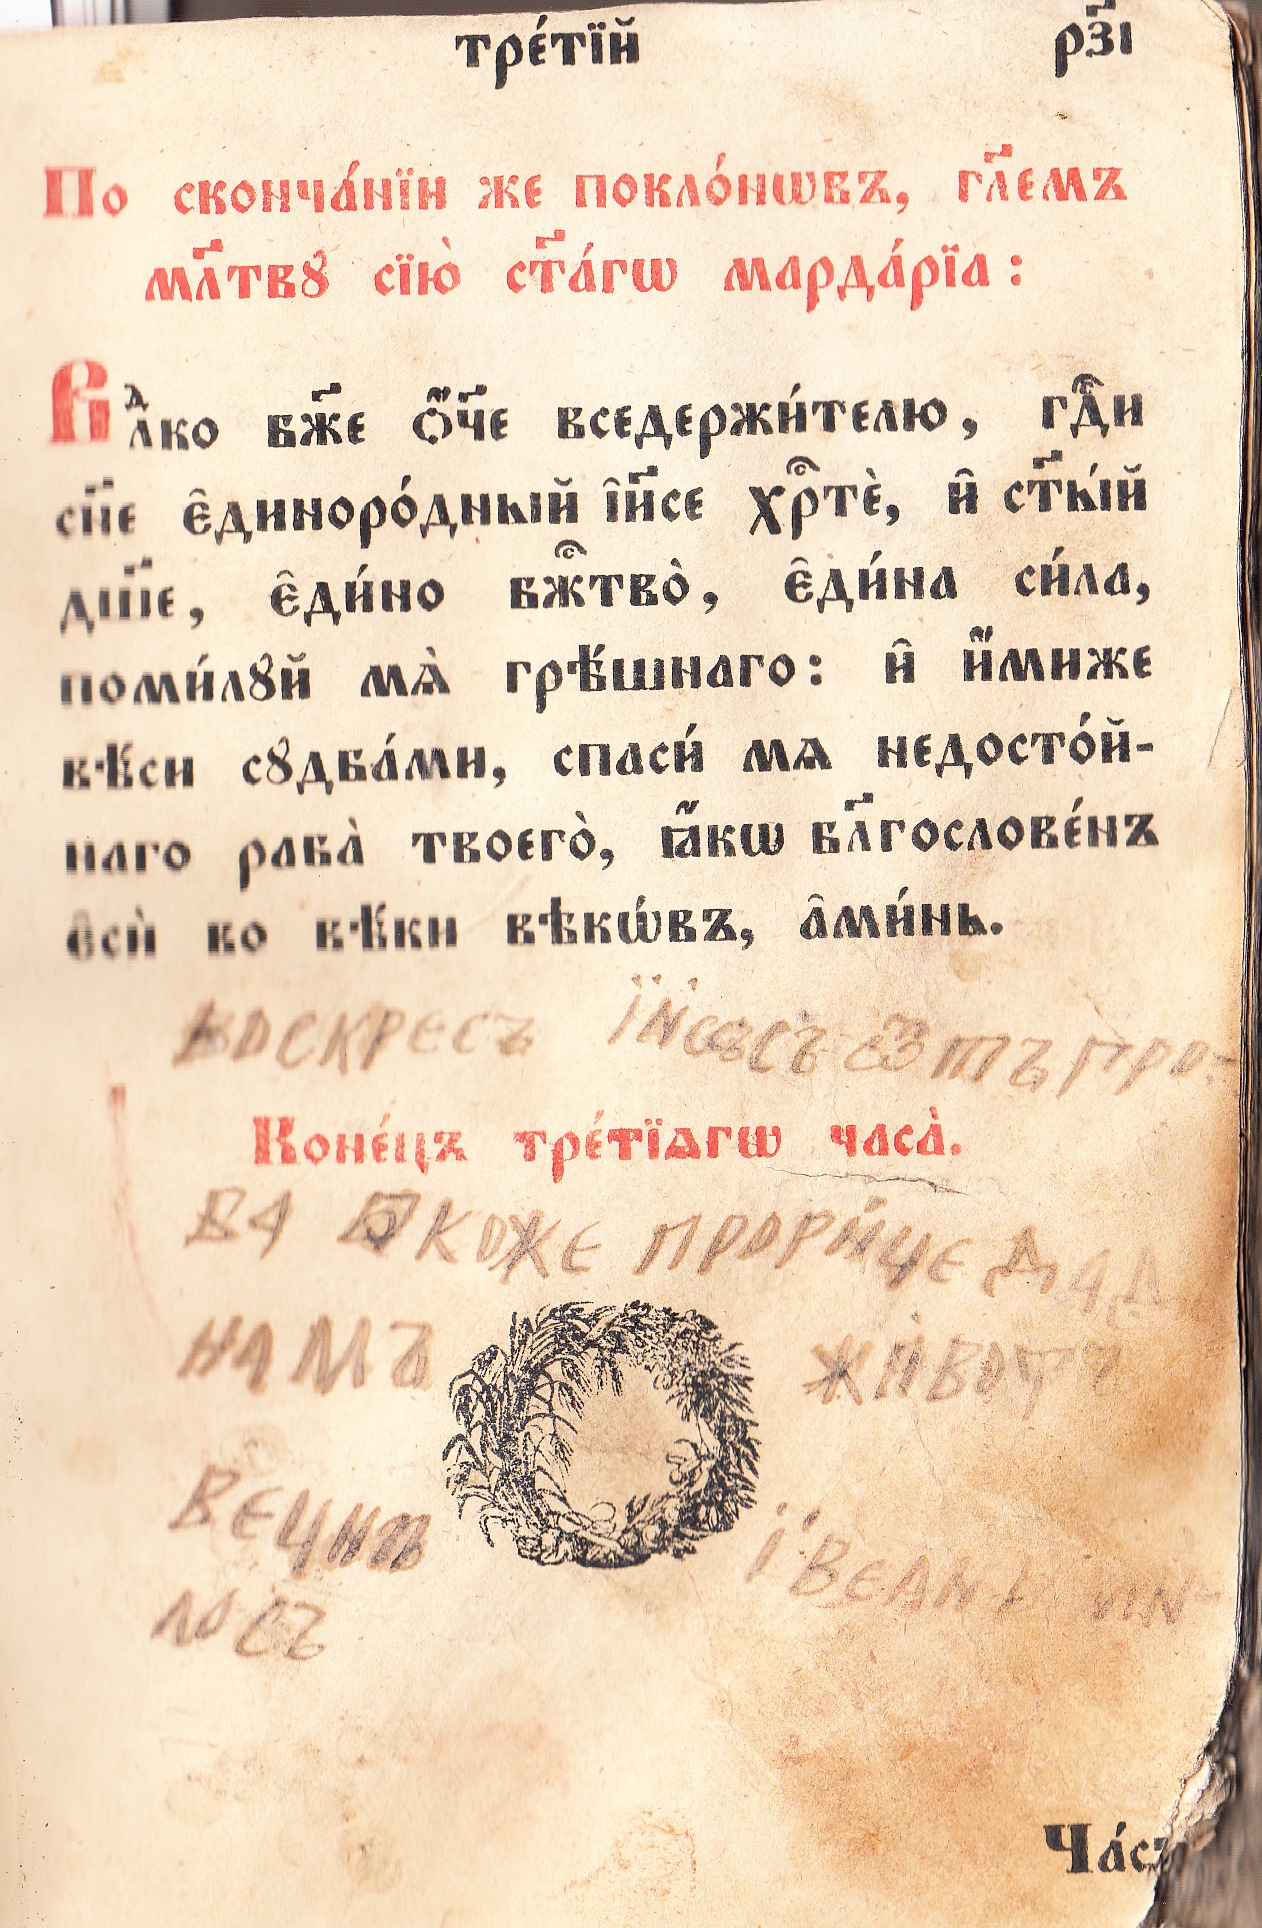 тре́тїй
рз҃і
По сконча́нїи же покло́нѡвъ, гл҃емъ
мл҃твꙋ сїю̀ ст҃а́гѡ мардарі́а:
Влⷣко бж҃е ѻ҆́ч҃е вседержи́телю, гдⷭ҇и
сн҃е є҆диноро́дный і҆и҃се хрⷭ҇тѐ, и҆ ст҃ы́й
дш҃е, є҆ди́но бжⷭ҇тво̀, є҆ди́на си́ла,
поми́лꙋй мѧ̀ грѣ́шнаго: и҆ и҆́миже
вѣ́си сꙋдба́ми, спаси́ мѧ недосто́й-
наго раба̀ твоего̀, ꙗ҆́кѡ бл҃гослове́нъ
є҆сѝ во вѣ́ки вѣкѡ́въ, а҆ми́нь.
воскресъ їисꙋсъ ѿтъ про-
Коне́цъ тре́тїѧгѡ часа̀.
ба ꙗкоже прорнце дад
намъ животъ
вецны ївелнꙋ мн-
лосъ
Ча́съ